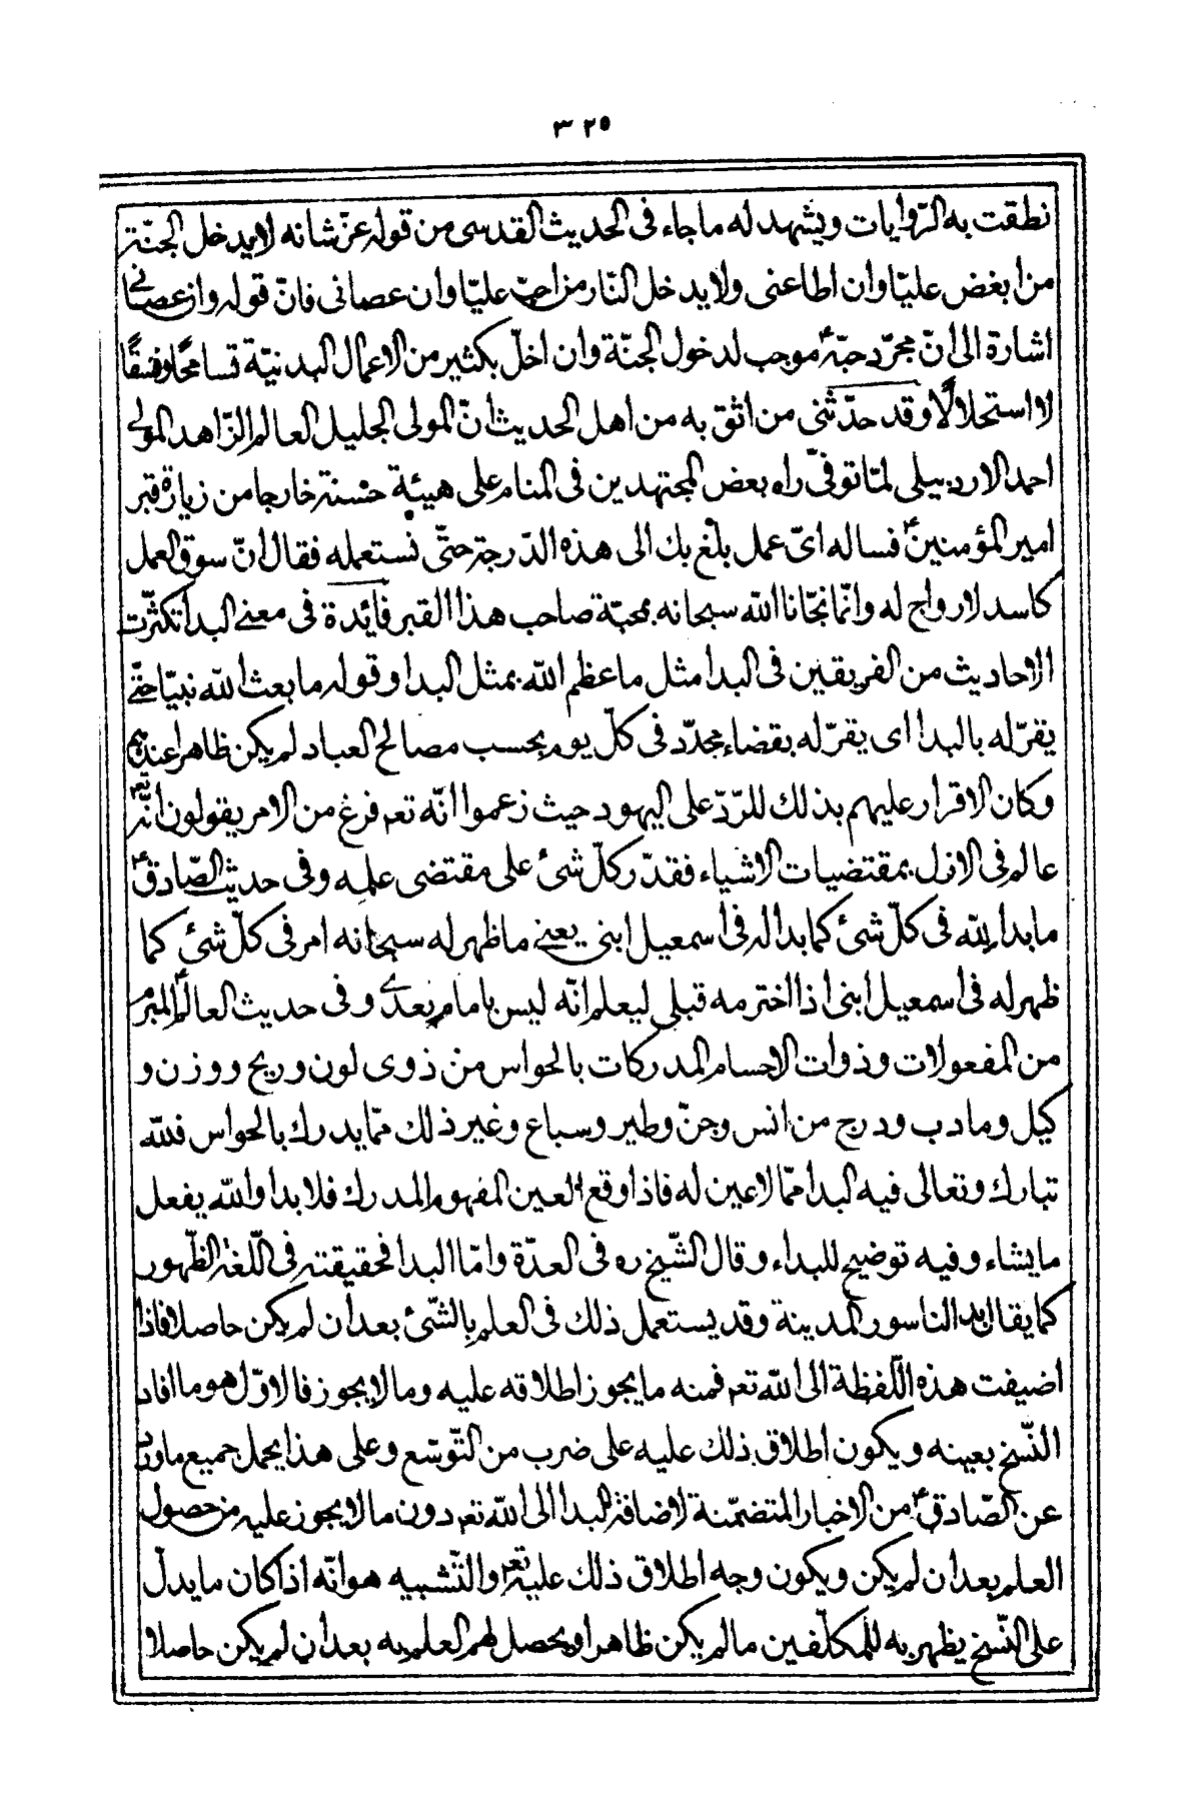 ٣٢٥
نطقت به الرّوايات ويشهد له ما جاء فى الحديث القدسى من قوله عزّ شانه لا يدخل الجنّة
من ابغض عليّا وان اطاعنى ولا يدخل النّار من احبّ عليّا وان عصانى فانّ قوله وان عصانى
اشارة الى انّ مجرّد حبّهؑ موجب لدخول الجنّة وان اخلّ بكثير من الاعمال البدنيّة تسامحًا وفسقًا
لا استحلالًا وقد حدّثنى من اثق به من اهل الحديث انّ المولى الجليل العالم الزّاهد المولى
احمد الاردبيلى لمّا توفّى راه بعض المجتهدين فى المنام على هيئة حسنة خارجا من زيارة قبر
امير المؤمنينؑ فساله اىّ عمل بلّغ بك الى هذه الدّرجة حتّى نستعمله فقال انّ سوق العمل
كاسد لا رواج له وانّما نجّانا اللّه سبحانه بمحبّة صاحب هذا القبر فائدة فى معنى البدا تكثّرت
الاحاديث من الفريقين فى البدا مثل ما عظم اللّه بمثل البدا وقوله ما بعث اللّه نبيّا حتّى
يقرّ له بالبدا اى يقرّ له بقضاء مجدّد فى كلّ يوم بحسب مصالح العباد لم يكن ظاهرا عندهم
وكان الاقرار عليهم بذلك للرّدّ على اليهود حيث زعموا انّه تعم فرغ من الامر يقولون انّه تعم
عالم فى الازل بمقتضيات الاشياء فقدّر كلّ شئ على مقتضى علمه وفى حديث الصّادقؑ
ما بدا للّه فى كلّ شئ كما بدا له فى اسمعيل ابنى يعنى ما ظهر له سبحانه امر فى كلّ شئ كما
ظهر له فى اسمعيل ابنى اذا اخترمه قبلى ليعلم انّه ليس بامام بعدى وفى حديث العالمؑ المبرم
من المفعولات وذوات الاجسام المدركات بالحواس من ذوى لون وريح ووزن و
كيل وما دب ودرج من انس وجنّ وطير وسباع وغير ذلك ممّا يدرك بالحواس فللّه
تبارك وتعالى فيه البدا ممّا لا عين له فاذا وقع العين المفهوم المدرك فلا بدا واللّه يفعل
ما يشاء وفيه توضيح للبداء وقال الشّيخ ره فى العدّة وامّا البدا فحقيقته فى اللّغة الظّهور
كما يقال بدا لنا سور المدينة وقد يستعمل ذلك فى العلم بالشّئ بعد ان لم يكن حاصلا فاذا
اضيفت هذه اللّفظة الى اللّه تعم فمنه ما يجوز اطلاقه عليه وما لا يجوز فالاوّل هو ما افاد
النّسخ بعينه ويكون اطلاق ذلك عليه على ضرب من التّوسّع وعلى هذا يحمل جميع ما ورد
عن الصّادقؑ من الاخبار المتضمّنة لاضافة البدا الى اللّه تعم دون ما لا يجوز عليه من حصول
العلم بعد ان لم يكن ويكون وجه اطلاق ذلك عليه تعم والتّشبيه هو انّه اذا كان ما يدلّ
على النّسخ يظهر به للمكلّفين ما لم يكن ظاهرا ويحصل لهم العلم به بعد ان لم يكن حاصلا